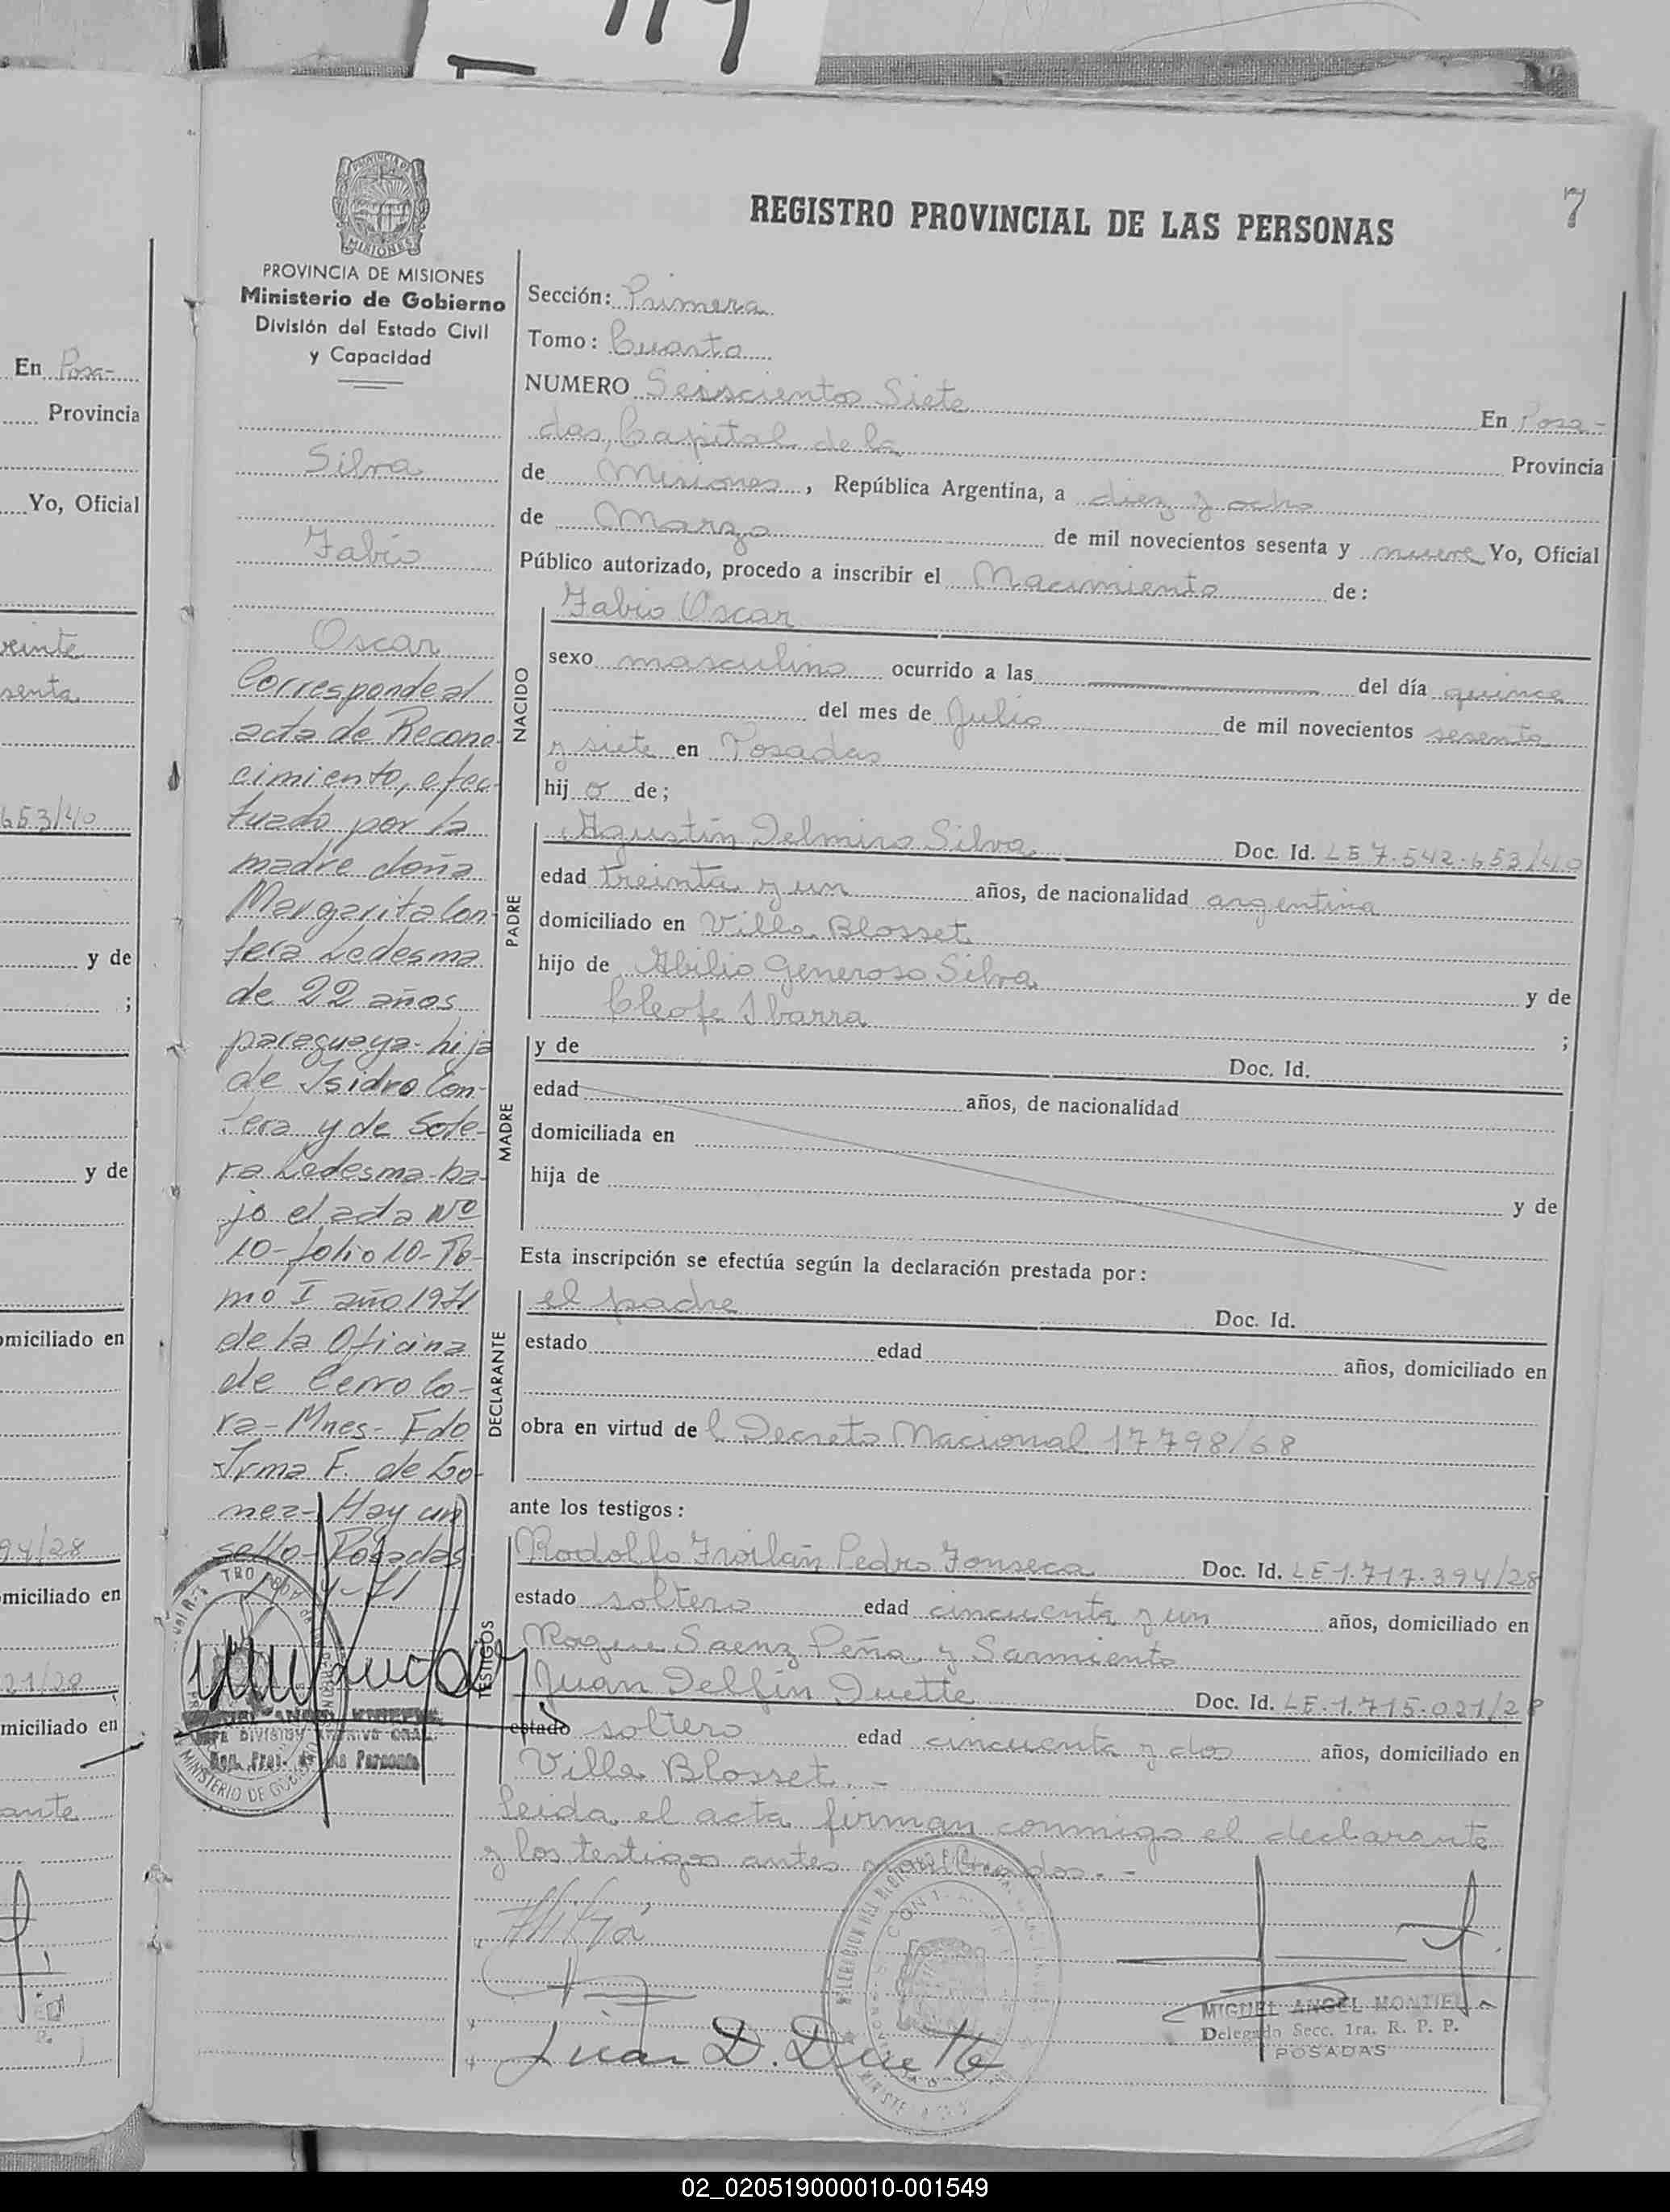 REGISTRO PROVINCIAL DE LAS PERSONAS
7
PROVINCIA DE MISIONES
Ministerio de Gobierno
División del Estado Civil
y Capacidad
Silva
Fabio
Oscar
Corresponde al
acta de Recono
cimiento, efec-
tuado por la
madre doña
Margarita Con
tera Ledesma
de 22 años
paraguaya-hija
de Isidro Con-
tera y de Sote-
ra Ledesma-ba-
jo el acta Nº
10-folio 10-To-
mo I año 1971
de la Oficina
de Cerro Co-
ra-Mnes-Fdo
Irma F. de Go-
mez-Hay un
sello-Posadas
4-71
Sección: Primera
Tomo: Cuarto
NUMERO Seiscientos Siete En Posa-
das, Capital de la Provincia
de Misiones, República Argentina, a diez y ocho
de Marzo de mil novecientos sesenta y nueve Yo, Oficial
Público autorizado, procedo a inscribir el Nacimiento de:
NACIDO
Fabio Oscar
sexo masculino ocurrido a las del día quince
del mes de Julio de mil novecientos sesenta
y siete en Posadas
hij o de;
PADRE
Agustín Delmiro Silva Doc. Id. LE 7.542.653/40
edad treinta y un años, de nacionalidad argentina
domiciliado en Villa Blosset
hijo de Abilio Generoso Silva y de
Cleofe Ibarra ;
MADRE
y de Doc. Id.
edad años, de nacionalidad
domiciliada en
hija de y de
Esta inscripción se efectúa según la declaración prestada por:
DECLARANTE
el padre Doc. Id.
estado edad años, domiciliado en
obra en virtud de l Decreto Nacional 17798/68
ante los testigos:
TESTIGOS
Rodolfo Froilán Pedro Fonseca Doc. Id. LE 1.717.394/28
estado soltero edad cincuenta y un años, domiciliado en
Roque Saenz Peña y Sarmiento
Juan Delfin Duette Doc. Id. LE.1.715.021/28
estado soltero edad cincuenta y dos años, domiciliado en
Villa Blosset.-
Leida el acta firman conmigo el declarante
y los testigos antes
Juan D. Duette
MIGUEL ANGEL MONTIEL
Delegado Secc. 1ra. R. P. P.
POSADAS
MINISTERIO DE
En Posa-
Provincia
Yo, Oficial
veinte
senta
653/40
y de
;
y de
omiciliado en
94/28
miciliado en
21/28
miciliado en
ante
02_020519000010-001549